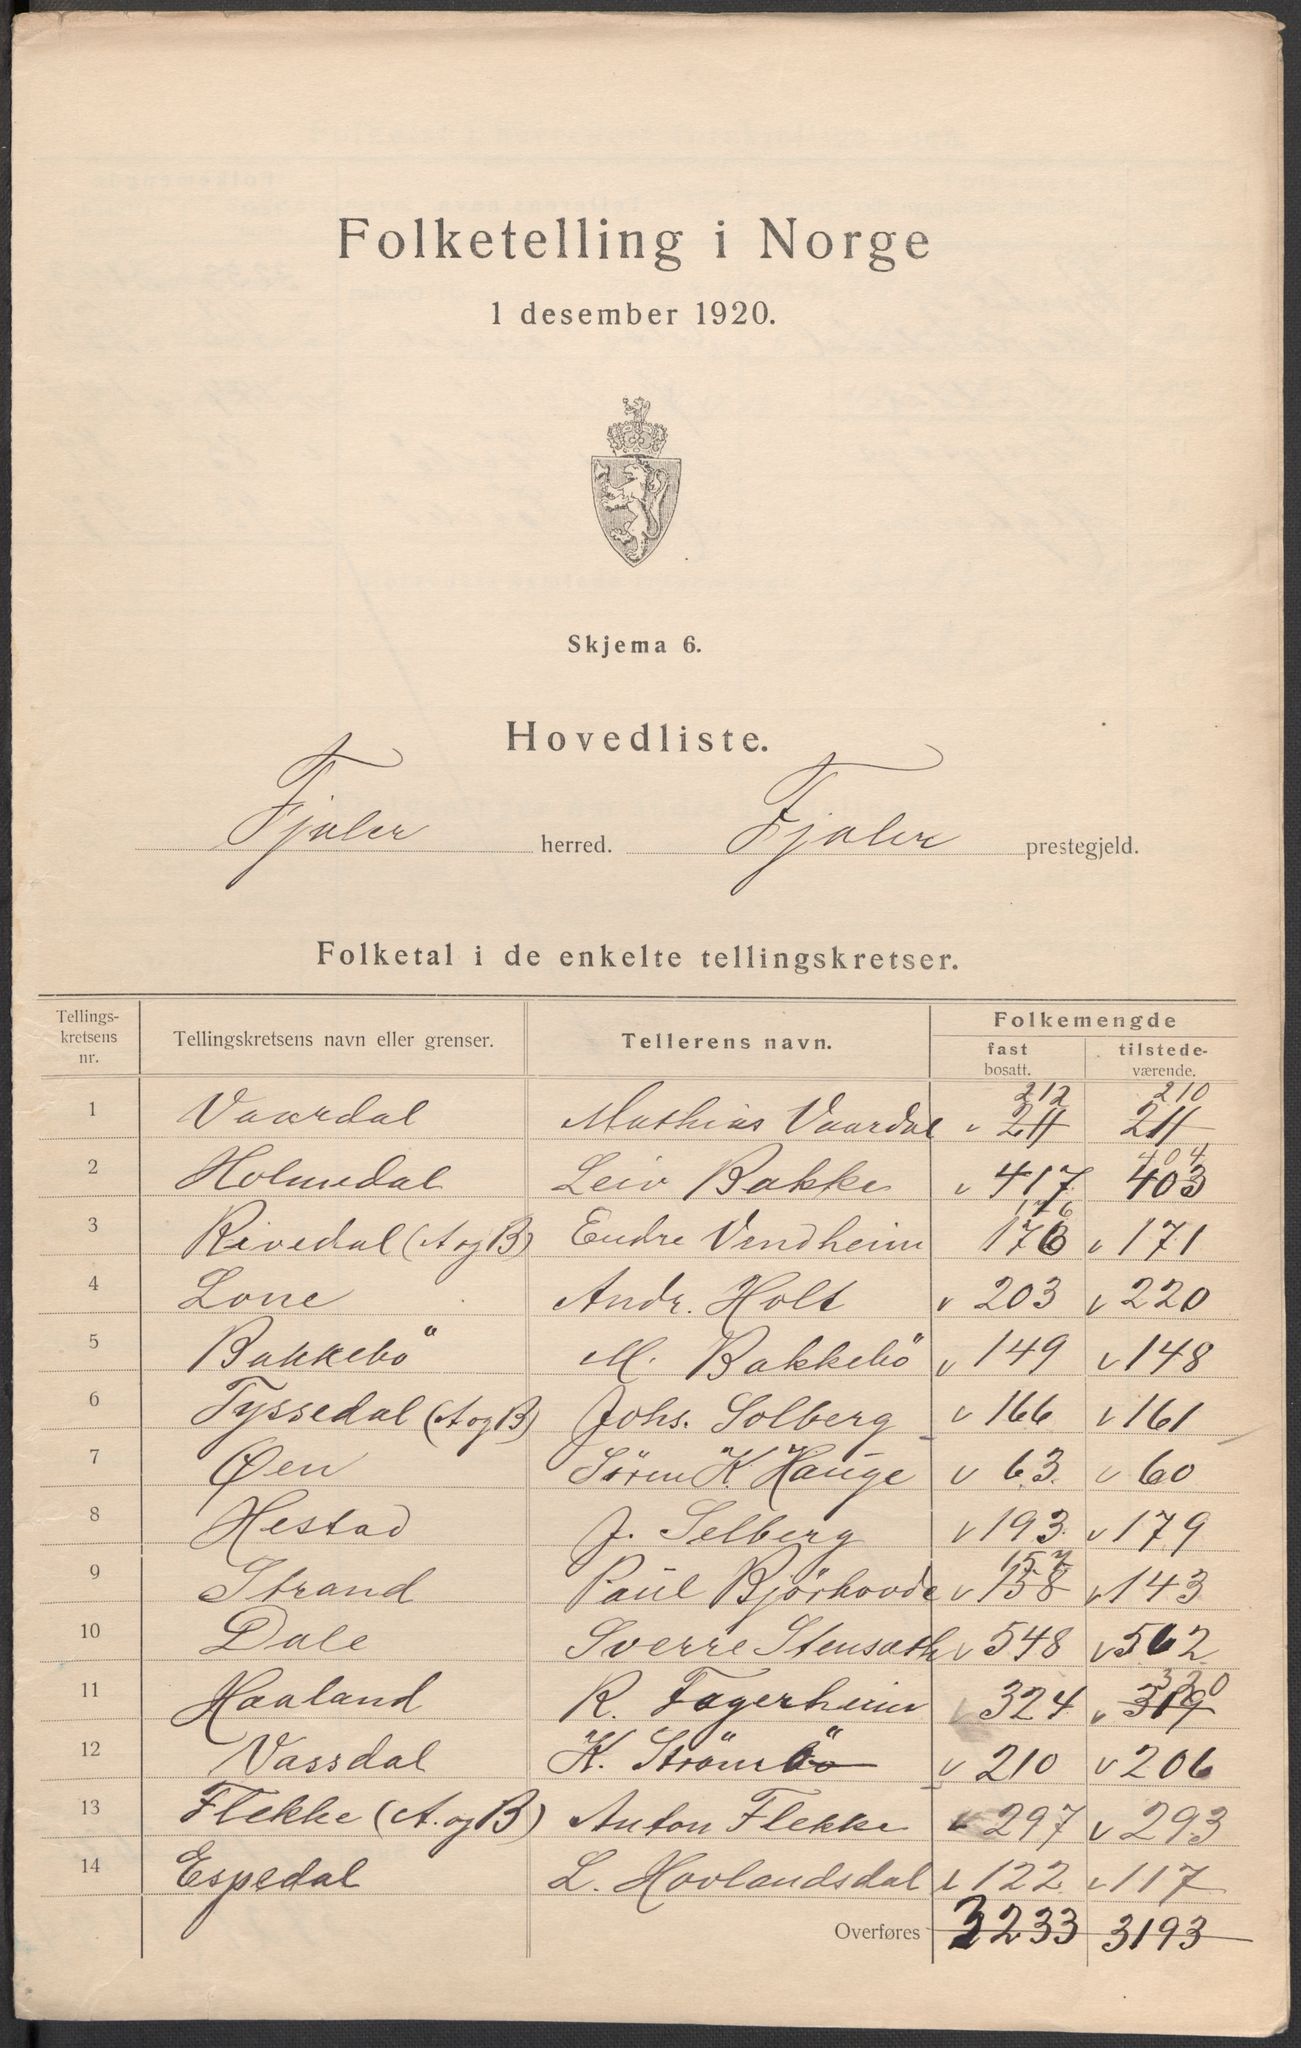 Folketelling i Norge
1 desember 1920.
Skjema 6.
Hovedliste.
Fjaler herred. Fjaler prestegjeld.
Folketal i de enkelte tellingskretser.
Tellings-kretsens nr. Tellingskretsens navn eller grenser. Tellerens navn. Folkemengde
fast bosatt. tilstede-værende.
212 210
1 Vaardal Mathias Vaardal v 211 211
404
2 Holmedal Leiv Bakke v 417 403
176
3 Rivedal (A og B) Endre Vendheim 176 v 171
4 Lone Andr. Holt v 203 v 220
5 Bakkebö M. Bakkebö v 149 v 148
6 Tyssedal (A og B) Johs. Solberg v 166 v 161
7 Øen Sören K. Hauge v 63. v 60
8 Hestad J. Selberg v 193. v 179
157
9 Strand Paul Björhovde v 158 v 143
10 Dale Sverre Stensæth v 548 v 562
320
11 Haaland R. Fagerheim v 324 v 319
12 Vassdal K. Strömbö v 210 v 206
13 Flekke (A. og B) Anton Flekke v 297 v 293
14 Espedal L. Hovlandsdal v 122 v 117
Overføres 3233 3193